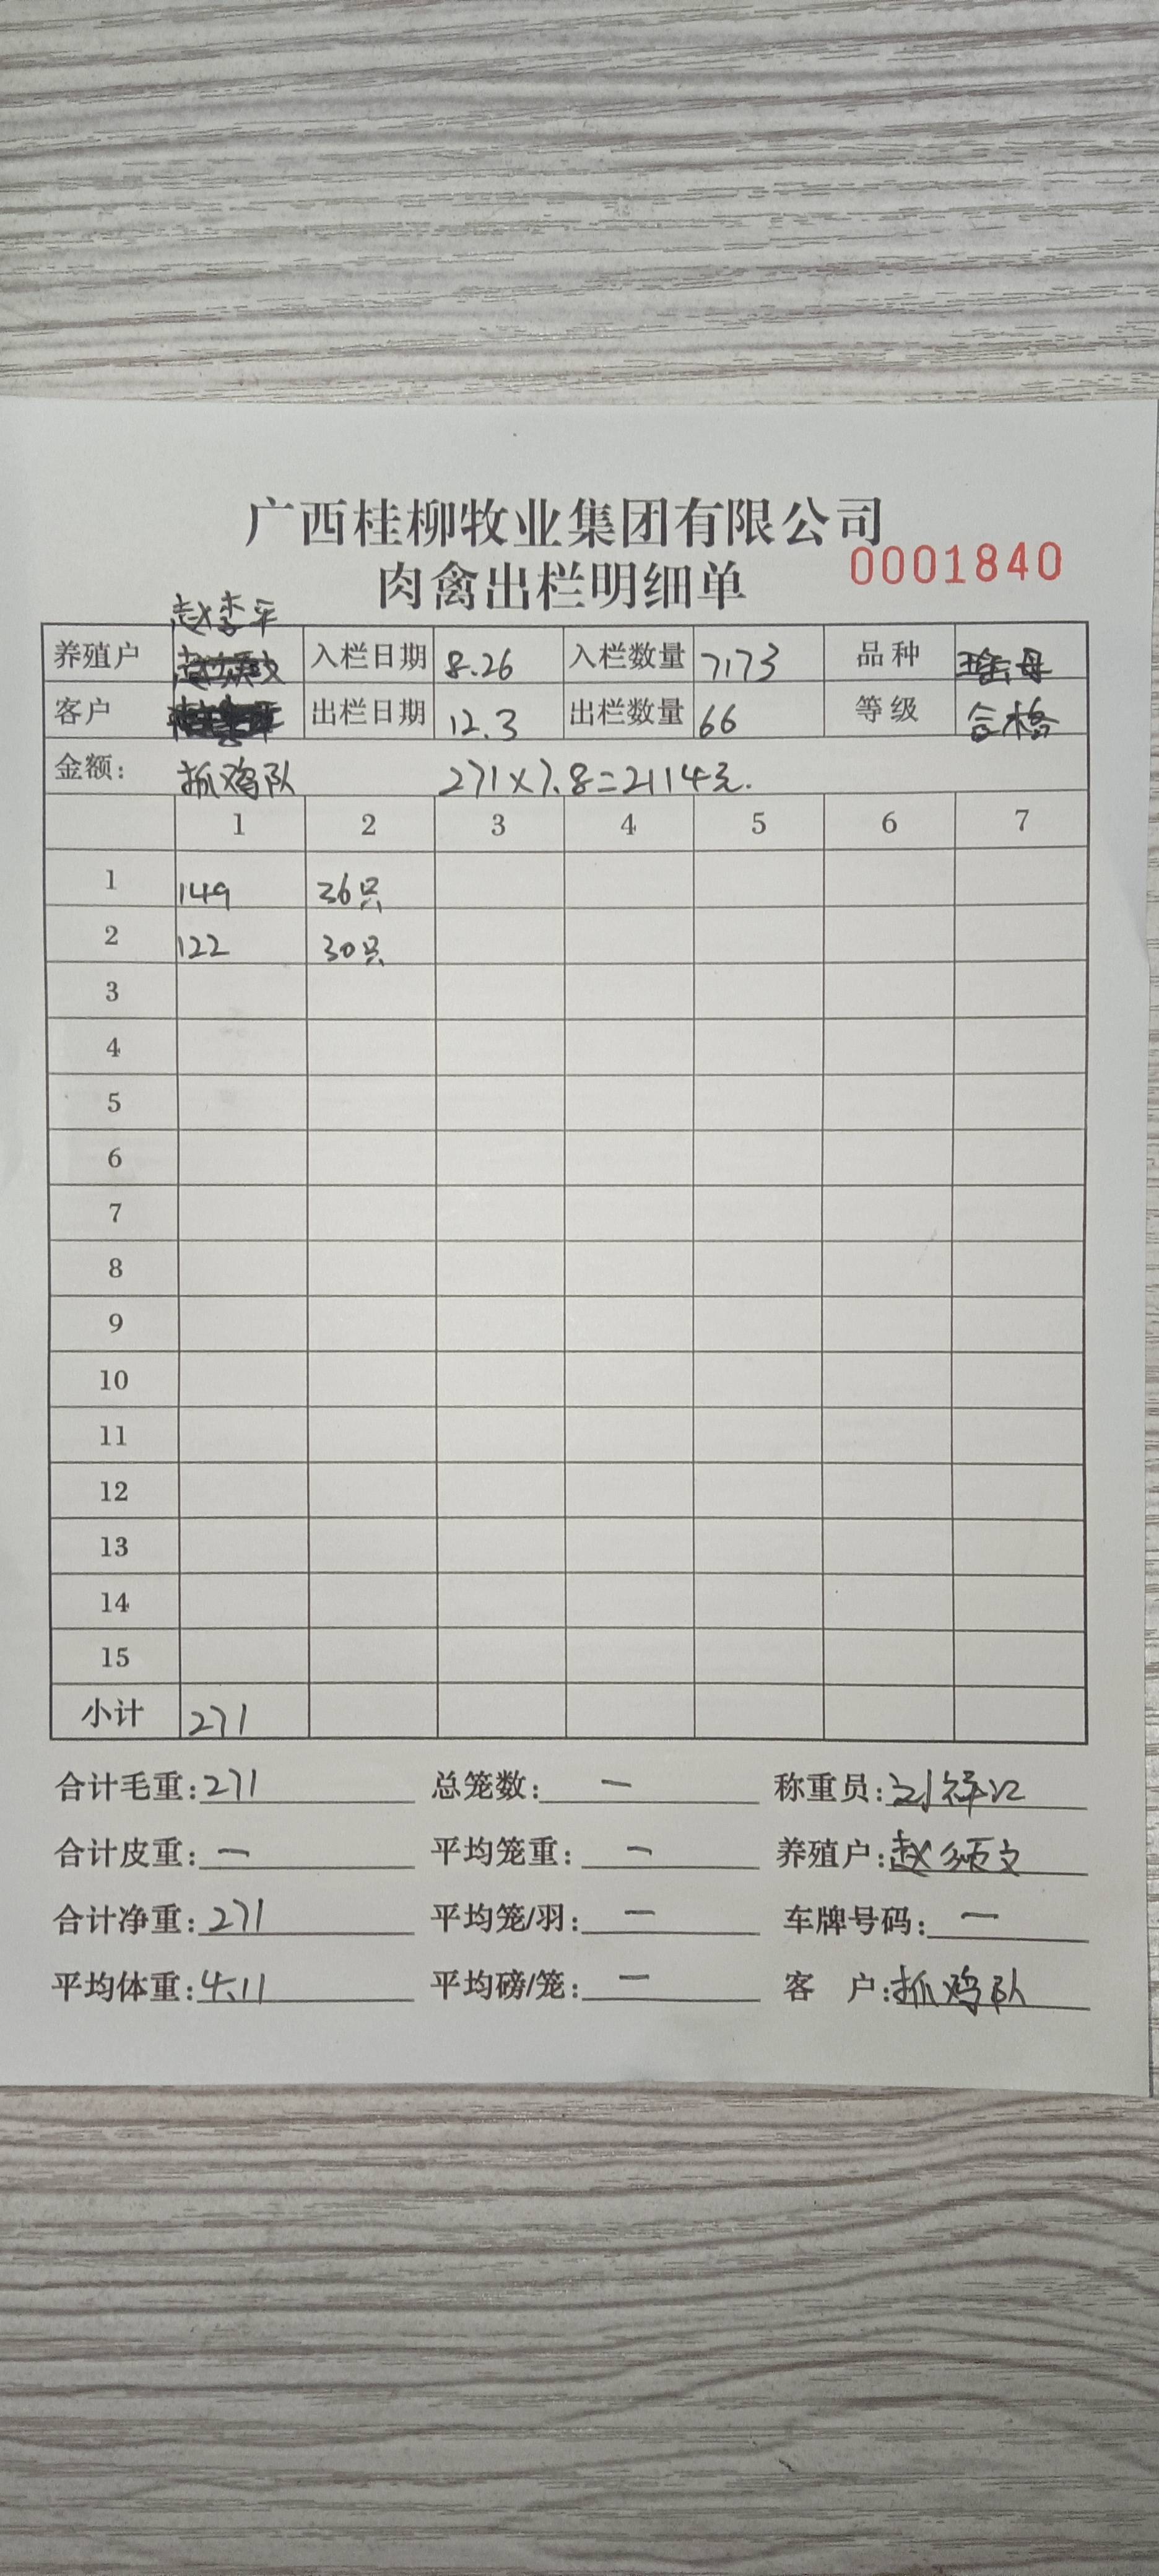 广西桂柳牧业集团有限公司
肉禽出栏明细单
0001840
赵李平
养殖户 入栏日期 8.26 入栏数量 7173 品种 瑶母
客户 出栏日期 12.3 出栏数量 66 等级 合格
金额: 抓鸡队 271×7.8=2114元.
1 2 3 4 5 6 7
1 149 36只
2 122 30只
3
4
5
6
7
8
9
10
11
12
13
14
15
小计 271
合计毛重:271 总笼数:一 称重员:刘祥
合计皮重:一 平均笼重:一 养殖户:赵硕文
合计净重:271 平均笼/羽:一 车牌号码:一
平均体重:4.11 平均磅/笼:一 客 户:抓鸡队